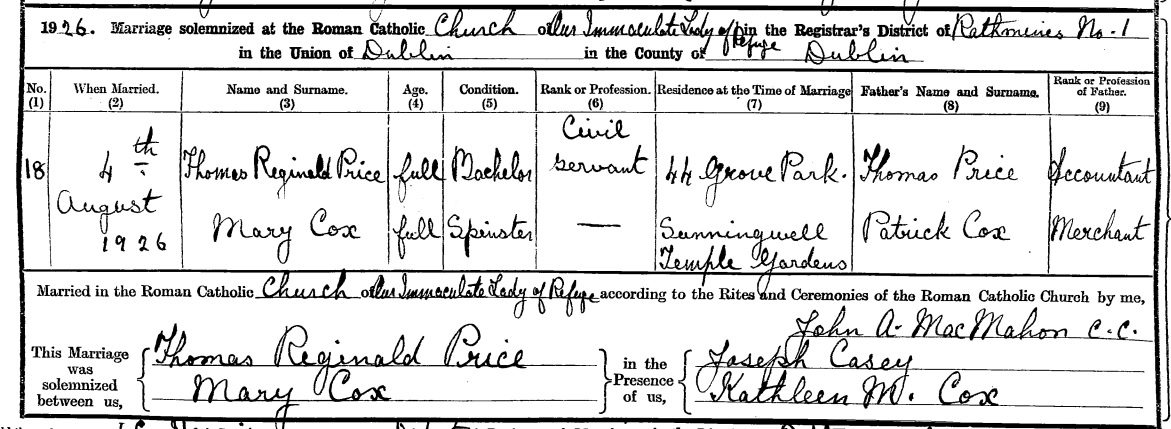 1926. Marriage solemnized at the Roman Catholic Church of Our Immaculate Lady of Refuge in the Registrar's District of Rathmines No. 1
in the Union of Dublin in the County of Dublin
No. (1) When Married. (2) Name and Surname. (3) Age. (4) Condition. (5) Rank or Profession. (6) Residence at the Time of Marriage (7) Father's Name and Surname. (8) Rank or Profession of Father. (9)
18 4th August 1926 Thomas Reginald Price full Bachelor Civil Servant 44 Grove Park. Thomas Price Accountant
Mary Cox full Spinster — Sunningwell Temple Gardens Patrick Cox Merchant
Married in the Roman Catholic Church of Our Immaculate Lady of Refuge according to the Rites and Ceremonies of the Roman Catholic Church by me,
John A. MacMahon C.C.
This Marriage was solemnized between us, Thomas Reginald Price
Mary Cox
in the Presence of us, Joseph Casey
Kathleen M. Cox